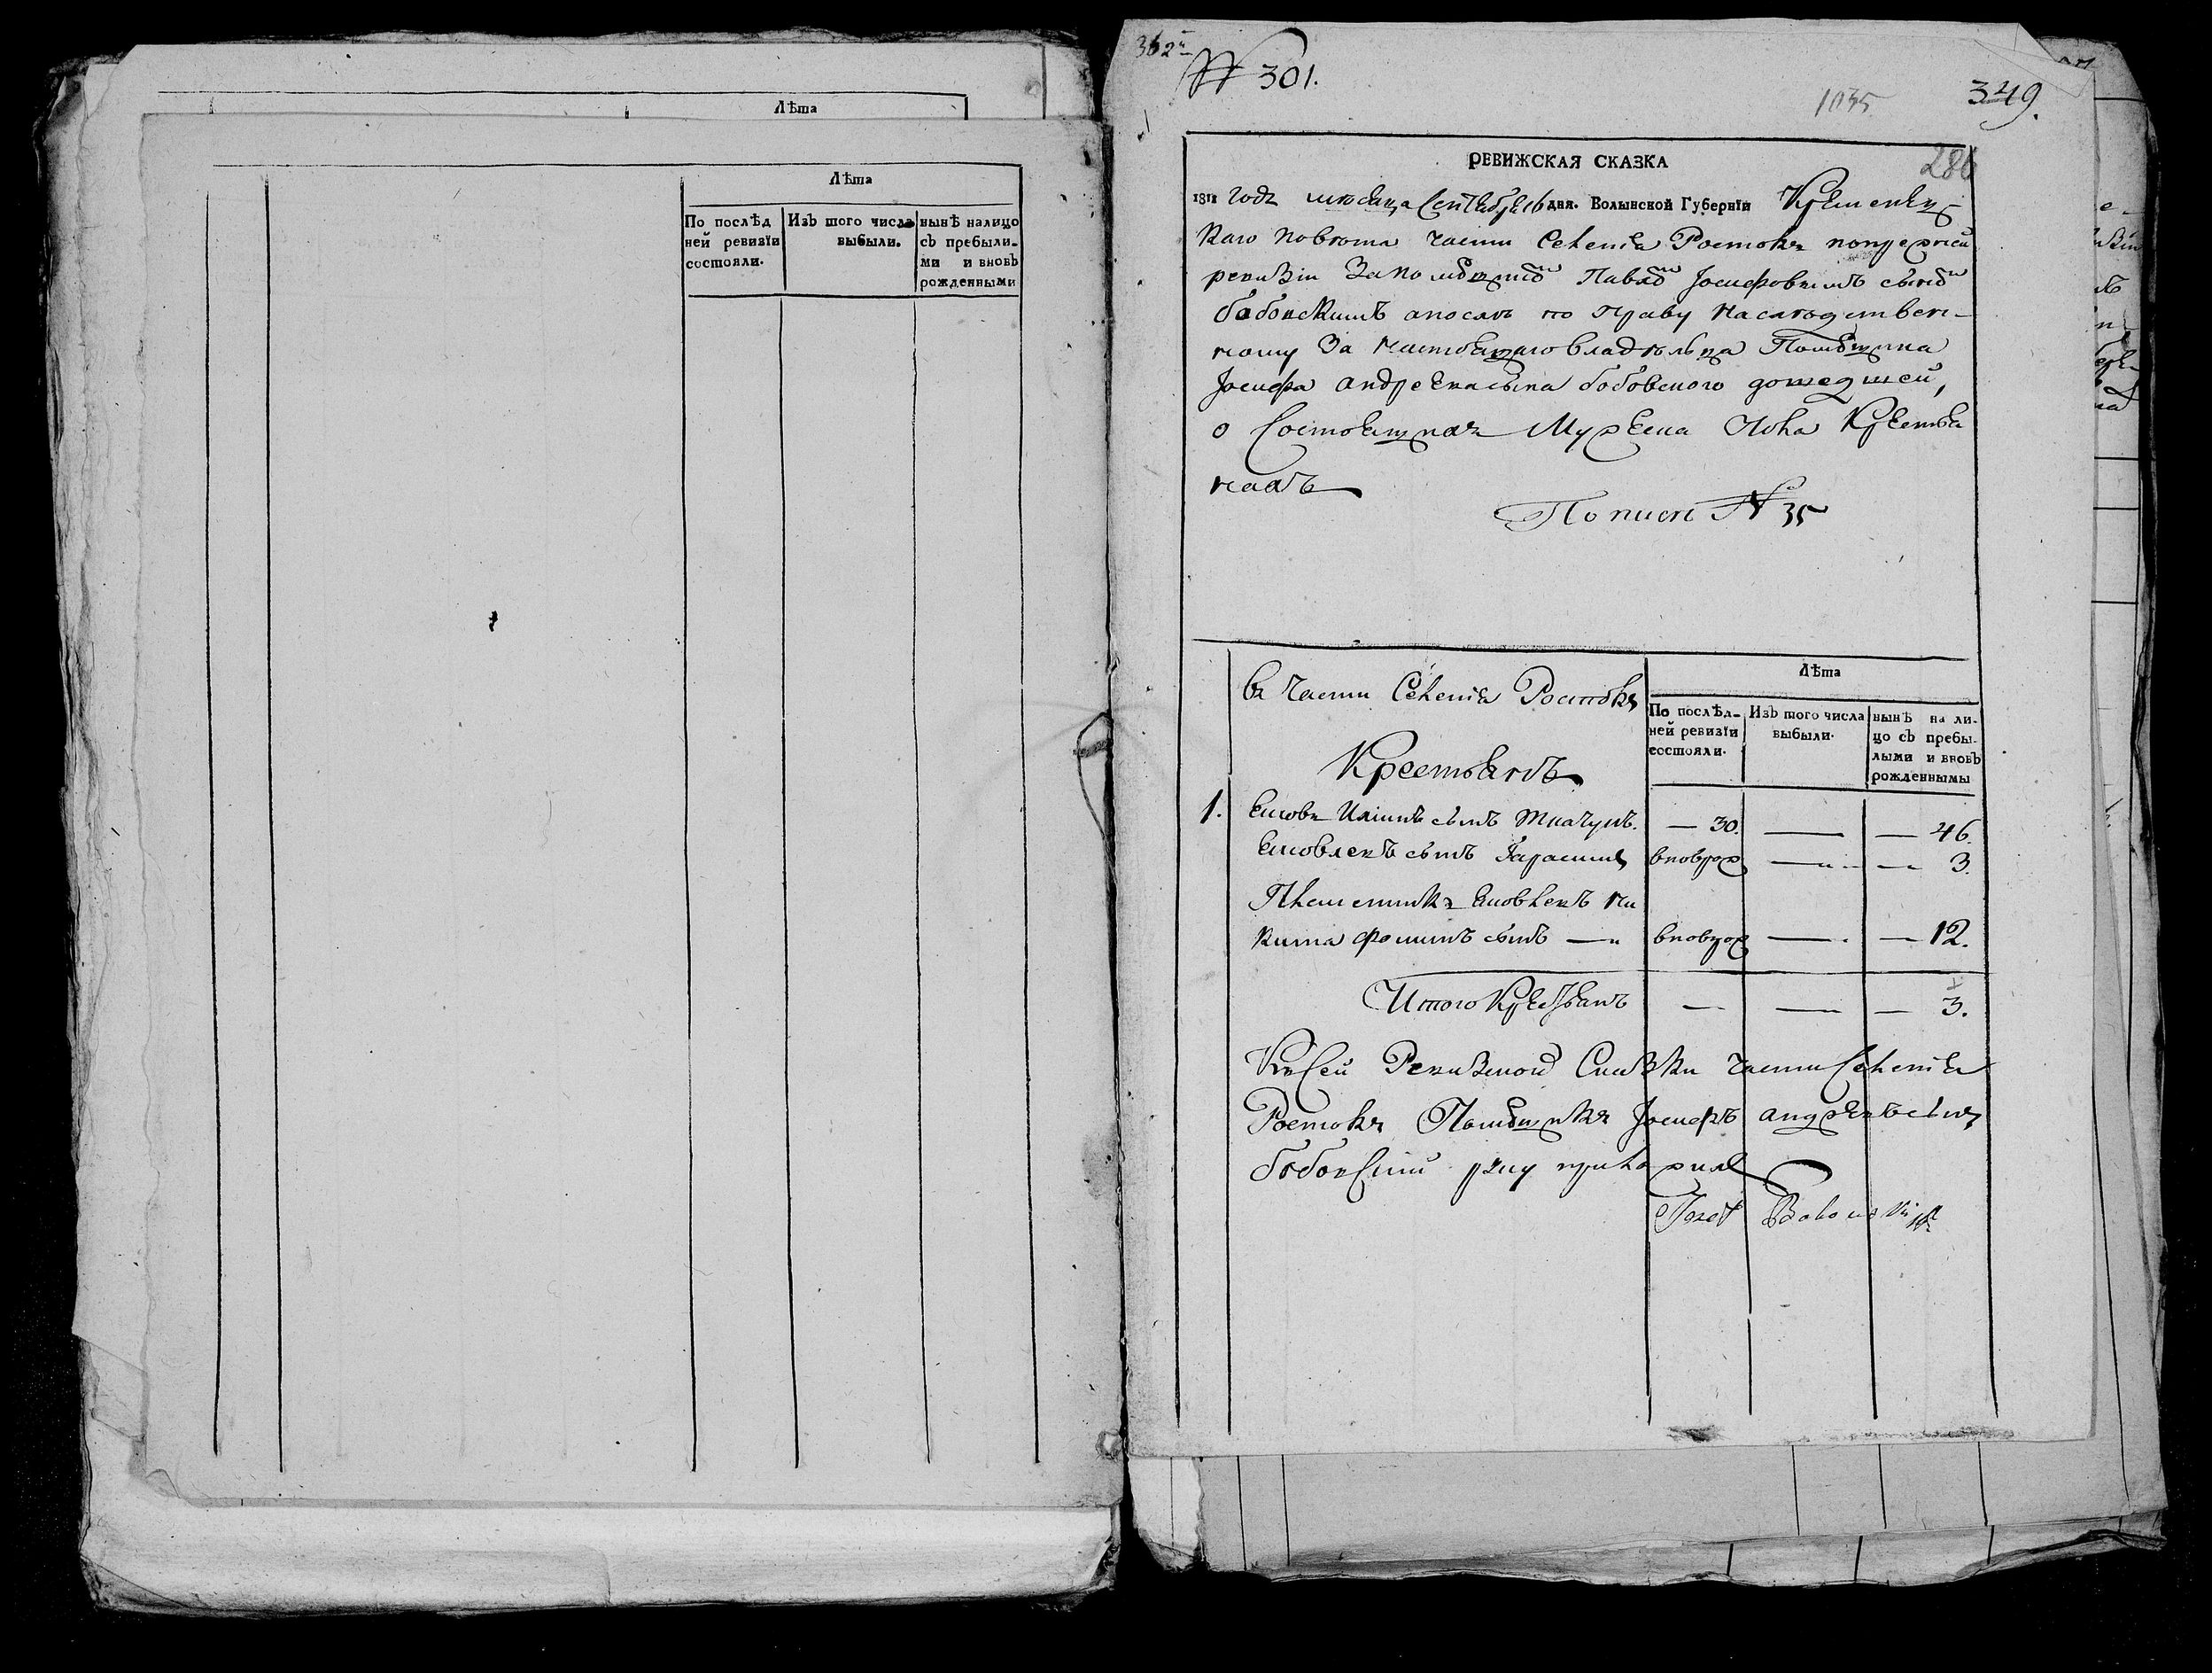 Лѣта
Лѣта
По послѣд
ней ревизїи
состояли.
Изъ того числа
выбыли.
нынѣ налицо
съ пребыли-
ми и вновь
рожденными
№ 301.
1035
349.
286
РЕВИЖСКАЯ СКАЗКА
1811 года мѣсяца Сентября дня. Волынской Губернїи Кременец
каго повѣта части Селенія Ростокъ по прежней
ревизіи за помѣщикомъ Павломъ Іосифовымъ сыномъ
бобовскимъ а послѣ по праву наслѣдствен-
ному за настоящаго владѣльца Помѣщика
Іосифа андреева сына бобовского дошедшей,
о Состоящихъ Мужеска Пола Крестья
нахъ
По писи № 35
въ части Селенія Ростокъ
Лѣта
По послѣд-
ней ревизїи
состояли.
Изъ того числа
выбыли.
нынѣ на ли-
цо съ пребы-
лыми и вновь
рожденнымы
Крестьянъ
1. Яковъ Иліинъ сынъ Ткачукъ. — 30. — — 46.
Яковлевъ сынъ Гарасимъ вновь рож — — 3.
Племенникъ Яковлевъ Ни
кита Фоминъ сынъ — вновь рож — — 12.
Итого Крестьянъ — — — 3.
Къ Сей Ревизкой Сказки части Селенія
Ростокъ Помѣщикъ Іосифъ андреевъ сынъ
бобовский руку приложилъ
Jozef Bobowski